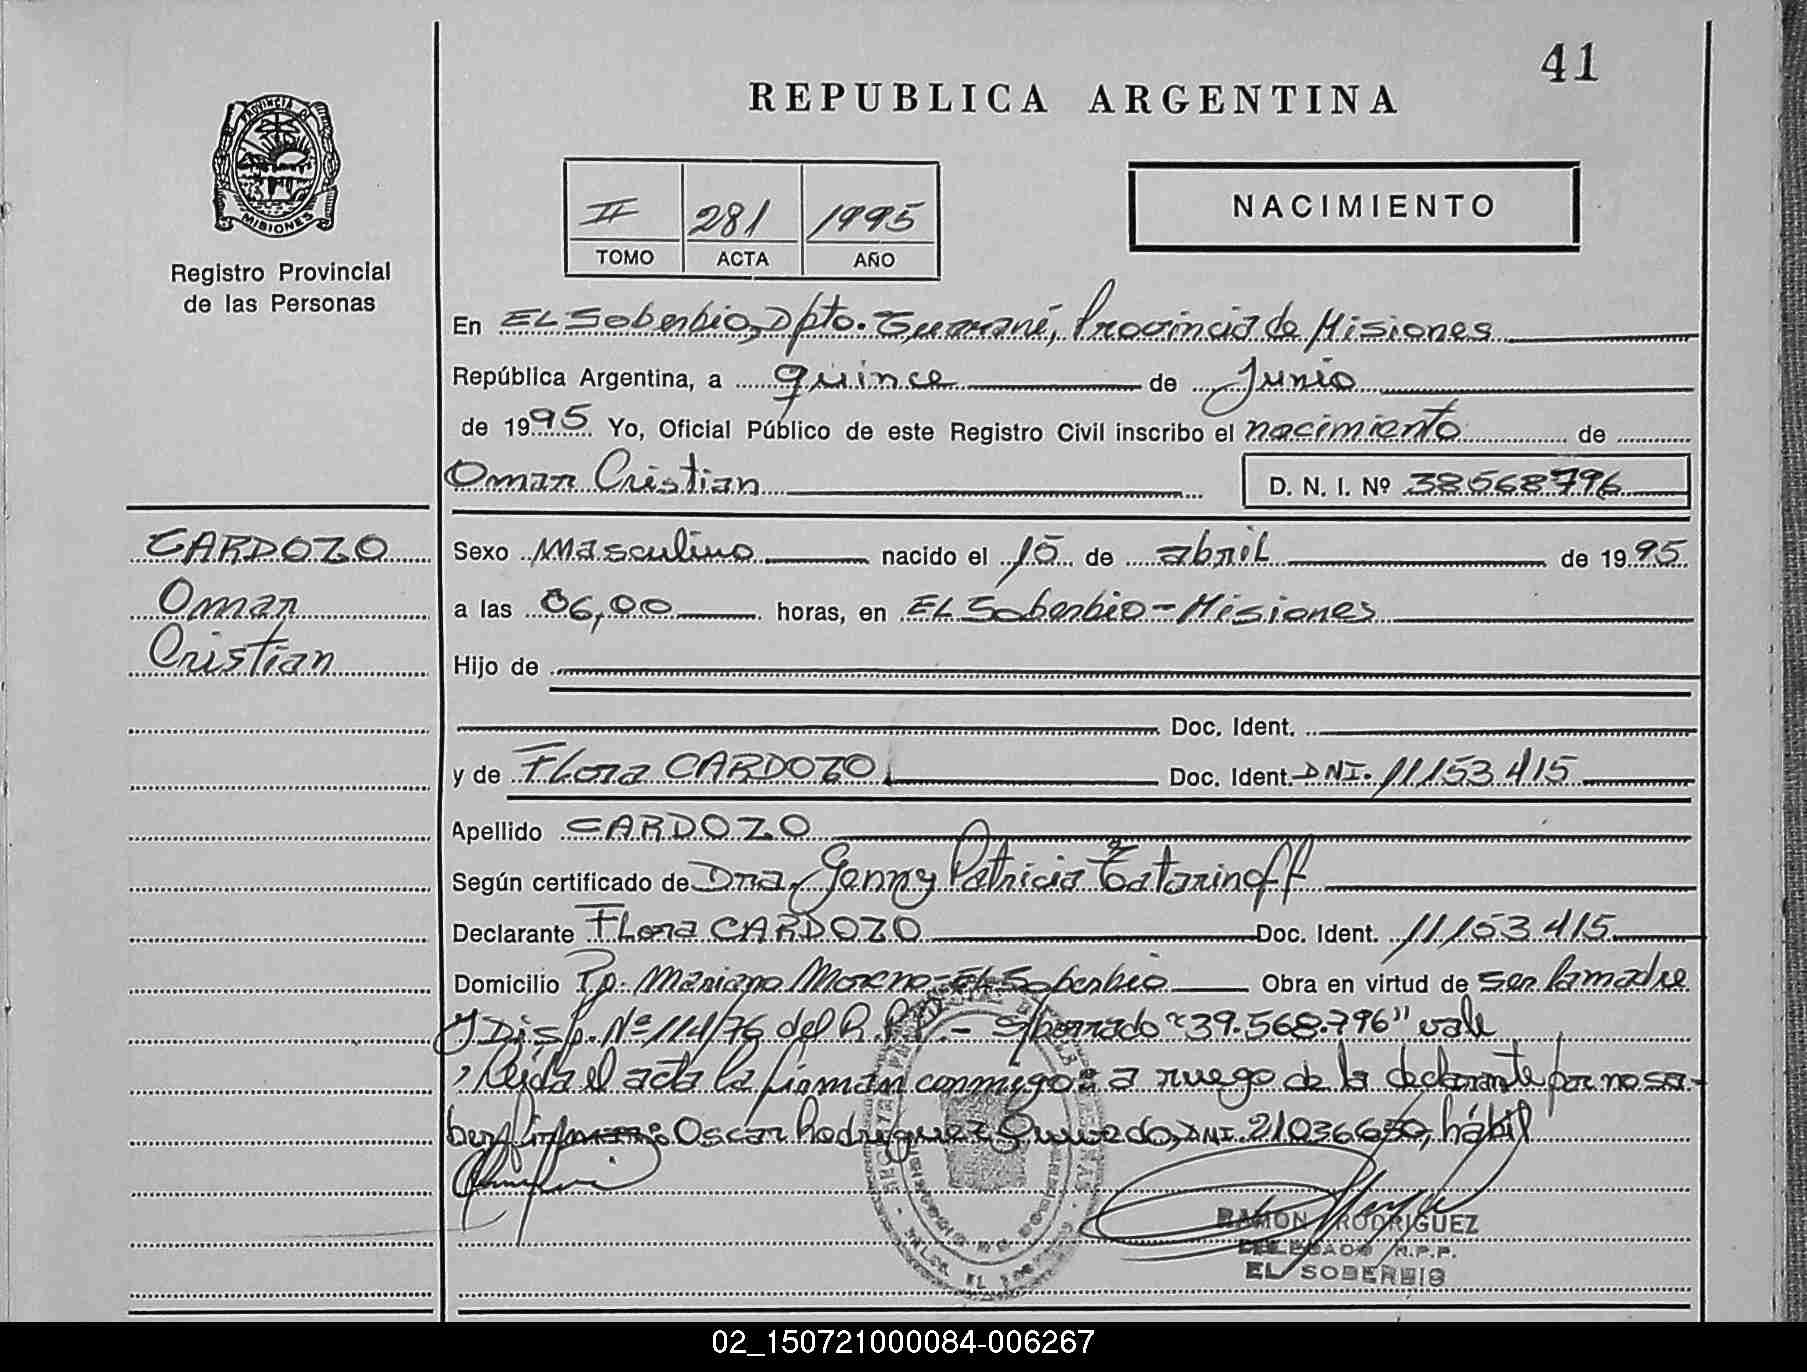 41
REPUBLICA ARGENTINA
PROVINCIA DE
MISIONES
Registro Provincial
de las Personas
II 281 1995
TOMO ACTA AÑO
NACIMIENTO
En EL Soberbio, Dpto. Guaraní, Provincia de Misiones
República Argentina, a quince de Junio
de 1995 Yo, Oficial Público de este Registro Civil inscribo el nacimiento de
Omar Cristian D. N. I. Nº 38568796
CARDOZO
Omar
Cristian
Sexo Masculino nacido el 15 de abril de 1995
a las 06,00 horas, en EL Soberbio - Misiones
Hijo de
Doc. Ident.
y de Flora CARDOZO Doc. Ident. DNI. 11153415
Apellido CARDOZO
Según certificado de Dra. Jenny Patricia Tatarinoff
Declarante Flora CARDOZO Doc. Ident. 11153415
Domicilio Pje. Mariano Moreno - EL Soberbio Obra en virtud de ser la madre
y Disp. Nº 114/76 del R.P.P. - S/borrado "39.568.796" vale
, Leída el acta la firman conmigo: a ruego de la declarante por no sa-
ber firmar: Oscar Rodriguez DNI. 21036650, hábil
RAMON RODRIGUEZ
DELEGADO R.P.P.
EL SOBERBIO
02_150721000084-006267